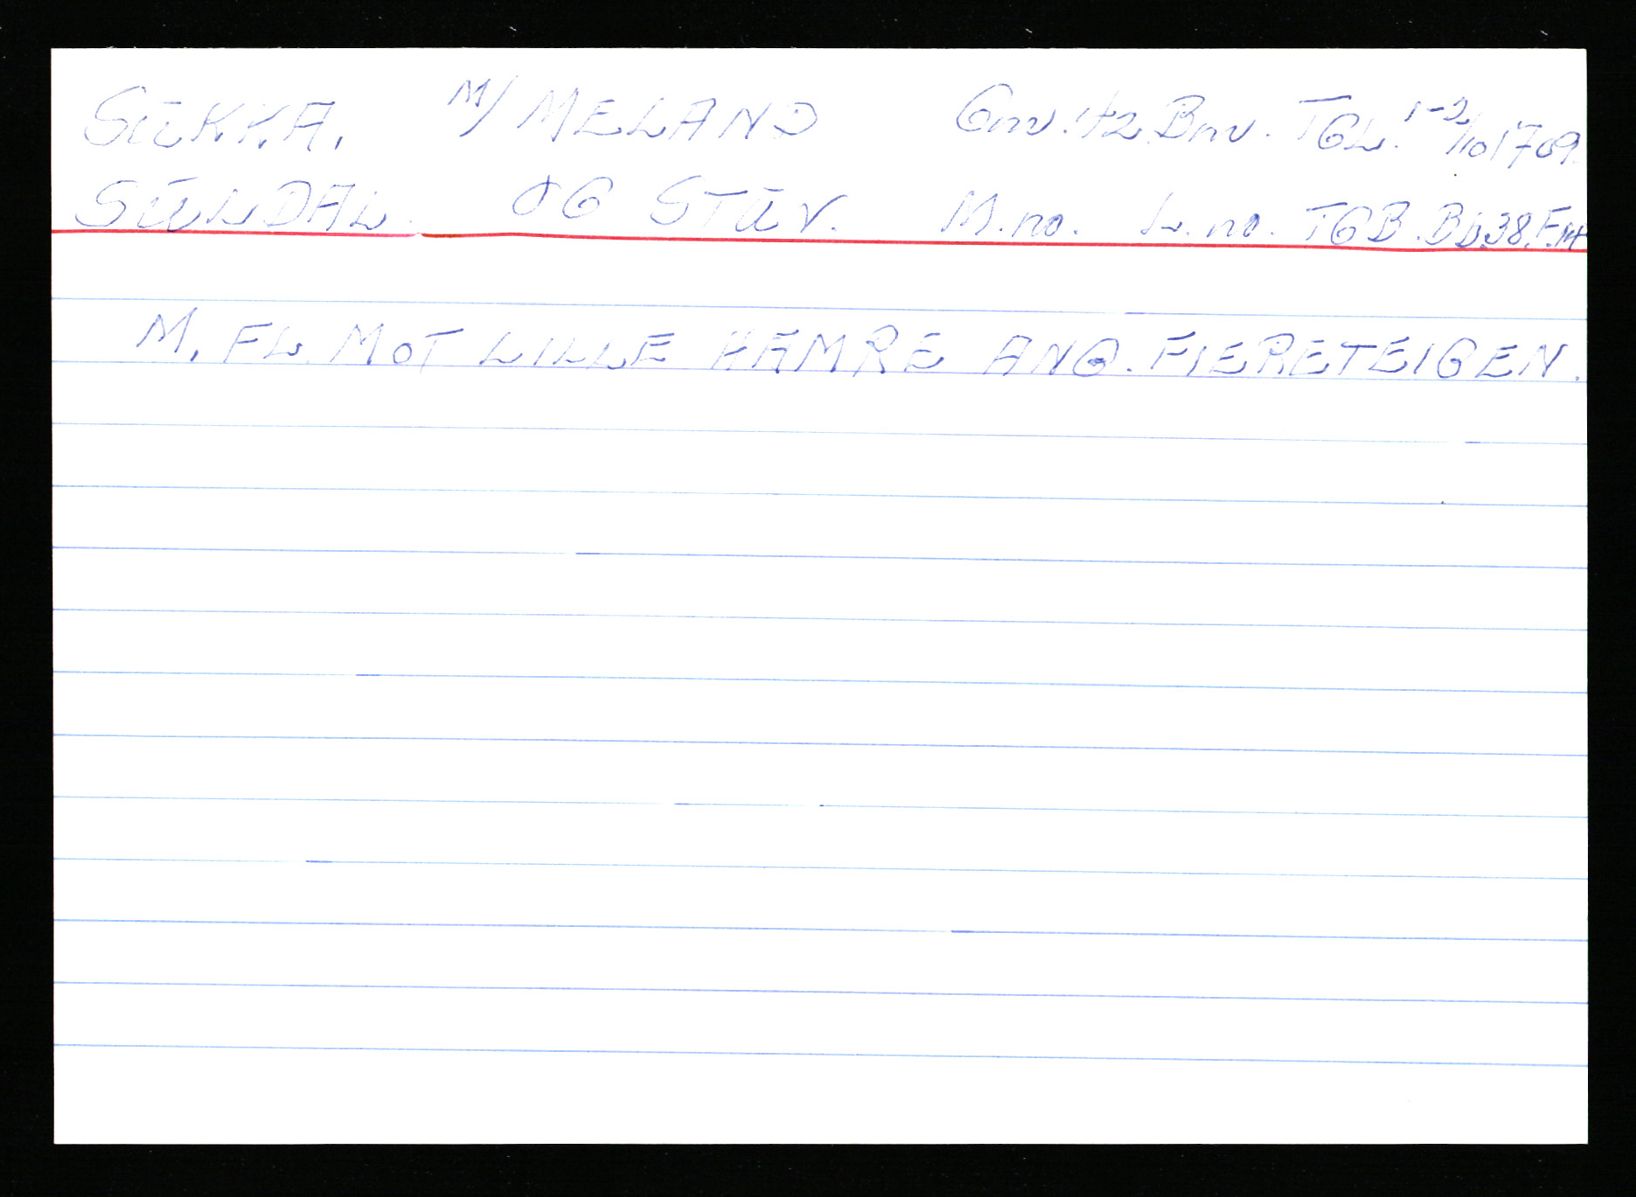 SŪKK.A. M/ MELAND Gnr. 42. Bnr. TGL. 1-2/10 1709.
SŪNDAL. OG STŪV. M.no. L.no. TGB. Bb.38.F.
M. FL. MOT LILLE HAMRE ANG. FIERETEIGEN.